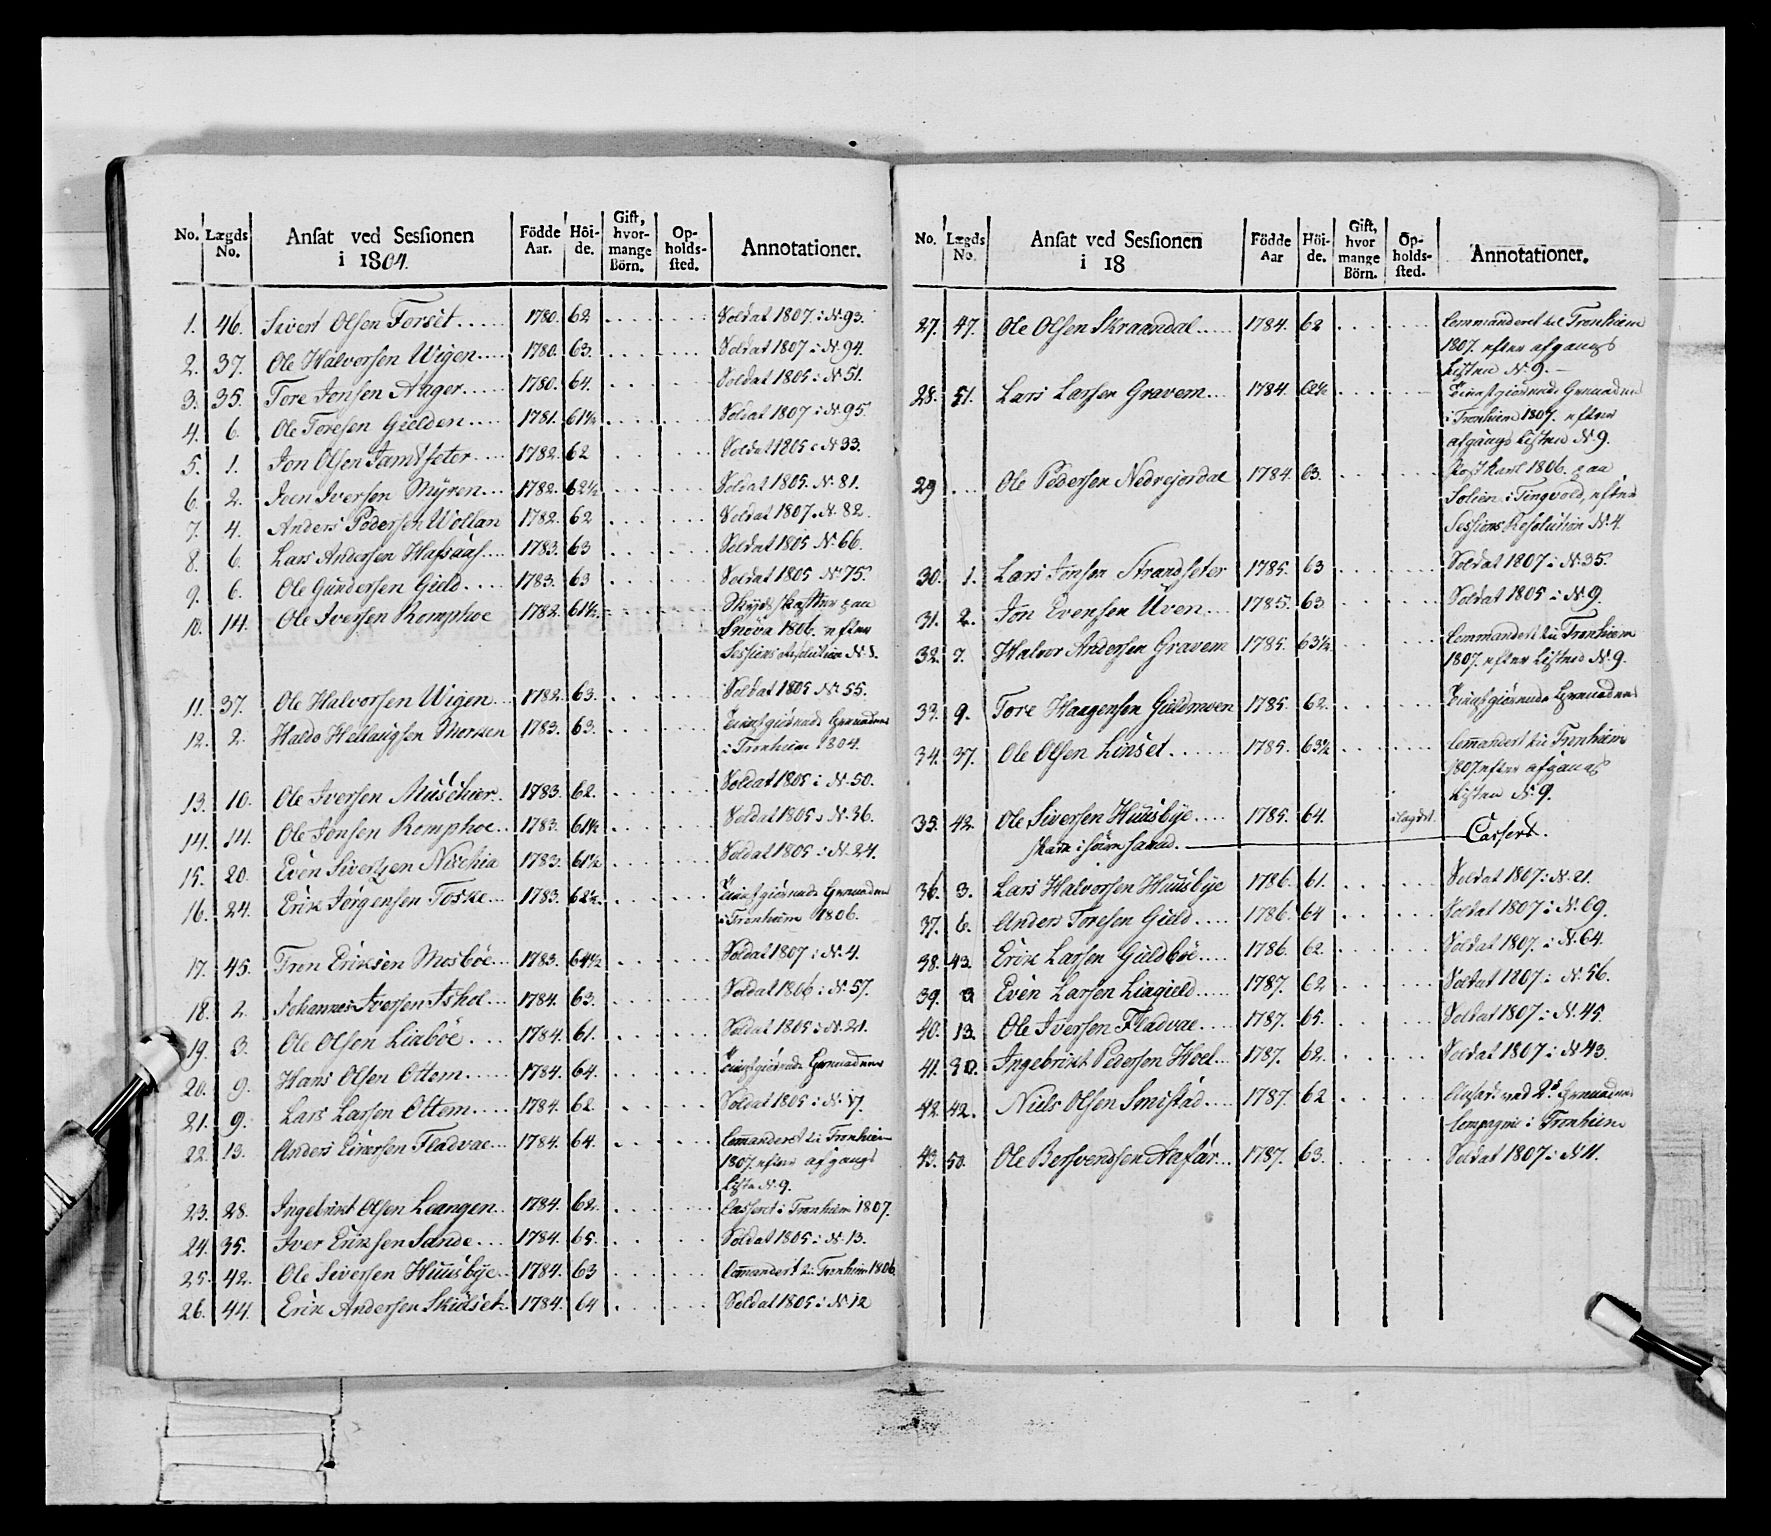 No. Lægds No. Ansat ved Sessionen i 1804. Födde Aar. Höi- de. Gift, hvor- mange Börn. Op- holds- sted. Annotationer.
1. 46. Sivert Olsen Forset..... 1780. 62 Soldat 1807. i No 93.
2. 37. Ole Halvorsen Wigen.... 1780. 63. Soldat 1807 i No 94.
3. 35. Tore Jonsen Anger..... 1780. 64. Soldat 1805 i No 51.
4. 6. Ole Toresen Gielden.... 1781. 61½ Soldat 1807 i No 95.
5. 1. Jon Olsen Jamtseter.... 1782. 62 Soldat 1805 i No 33.
6. 2. Joen Iversen Myren... 1782. 62½ Soldat 1805. No 81.
7. 4. Anders Pedersen Wollan 1782. 62 Soldat 1807. No 82.
8. 6. Lars Andersen Hafsaas.... 1783. 63 Soldat 1805 No 66.
9. 6. Ole Gundersen Gield.... 1783. 63 Soldat 1805 No 75.
10. 14. Ole Iversen Romphoe 1782. 61½ Skydsskaffer paa
Snöva 1806. efter
Sessions Resolution No 1.
11. 37. Ole Halvorsen Wigen... 1782. 63. Soldat 1805 No 55.
12. 2. Haldo Hellaugsen Mørken 1783. 63. Tienstgiörende Grenadeer
i Tronhiem 1804.
13. 10. Ole Iversen Musehier.. 1783. 62. Soldat 1805 i No 50.
14. 14. Ole Jonsen Romphoe.. 1783. 61½ Soldat 1805 i No 36.
15. 20. Even Sivertsen Nischia 1783. 61½ Soldat 1805 i No 24.
16. 24. Erik Jørgensen Toske... 1783. 62½. Tienstgiörende Grenadeer
i Tronhiem 1806.
17. 45. Tron Eriksen Mosböe... 1783. 64½ Soldat 1807 i No 4.
18. 2. Johannes Iversen Ishol... 1784. 63. Soldat 1806 i No 57.
19. 3. Ole Olsen Liaböe.... 1784. 61. Soldat 1805 i No 21.
20. 9. Hans Olsen Ottem..... 1784. 64. Tienstgiörende Grenadeer
21. 9. Lars Larsen Ottem..... 1784. 62. Soldat 1805 i No 17.
22. 13. Anders Einersen Fladvae... 1784. 64. Commanderet til Tronhiem
1807. efter afgangs
Liste No 9.
23. 28. Ingebrikt Olsen Leangen.. 1784. 62. Casseret i Tronhiem 1807.
24. 35. Iver Eriksen Sande.... 1784. 65. Soldat 1805 i No 13.
25. 42. Ole Siversen Huusbye.. 1784. 63 Commandert til Tronhiem 1806.
26. 44. Erik Andersen Skidset. 1784. 64 Soldat 1805 i No 12
No. Lægds No. Ansat ved Sessionen i 18 Födde Aar Höi- de. Gift, hvor mange Börn. Op- holds- sted. Annotationer.
27. 47. Ole Olsen Skraandal..... 1784. 62 Commanderet til Tronhiem
1807. efter afgangs
Listen No 9.
28. 51. Lars Larsen Gravem... 1784. 62½ Tienstgiörende Grenadeer
i Tronhiem 1807. efter
afgangs Listen No 9.
29 Ole Pedersen Nedrejordal 1784. 63. 1806. paa
Solien i Tingvold, efter
Sessions Resolution No 4.
30. 1. Lars Jonsen Strandseter 1785. 63 Soldat 1807 i No 35.
31. 2. Jon Evensen Uven.... 1785. 63 Soldat 1805 i No 9.
32. 7. Halvor Andersen Gravem 1785. 63½ Commandert til Tronhiem
1807. efter Listen No 9.
33. 9. Tore Haagensen Guldmoen 1785. 62. Tienstgiörende Grenadeer
34. 37. Ole Olsen Linset...... 1785. 63½ Commandert til Tronhiem
1807. efter afgangs
Listen No 9.
35. 42. Ole Siversen Huusbye... 1785. 64. i lagdet. Cassert.
36. 3. Lars Halvorsen Huusbye 1786. 61. Soldat 1807 i No 21.
37. 6. Anders Toresen Gield..... 1786. 64 Soldat 1807 i No 69.
38. 43. Erik Larsen Guldböe..... 1786. 62. Soldat 1807. i No 64.
39. 3 Even Larsen Liagield..... 1787. 62 Soldat 1807 i No 56.
40. 13. Ole Iversen Fladvae.... 1787. 65. Soldat 1807 i No 45.
41. 30. Ingebrikt Pedersen Hoel.. 1787. 62. Soldat 1807 i No 43.
42. 42. Niels Olsen Smistad.... 1787. 62 ved 2de Grenadeer
Compagnie i Tronhiem
43. 50. Ole Bersvendsen Aafar... 1787. 63. Soldat 1807 i No 11.